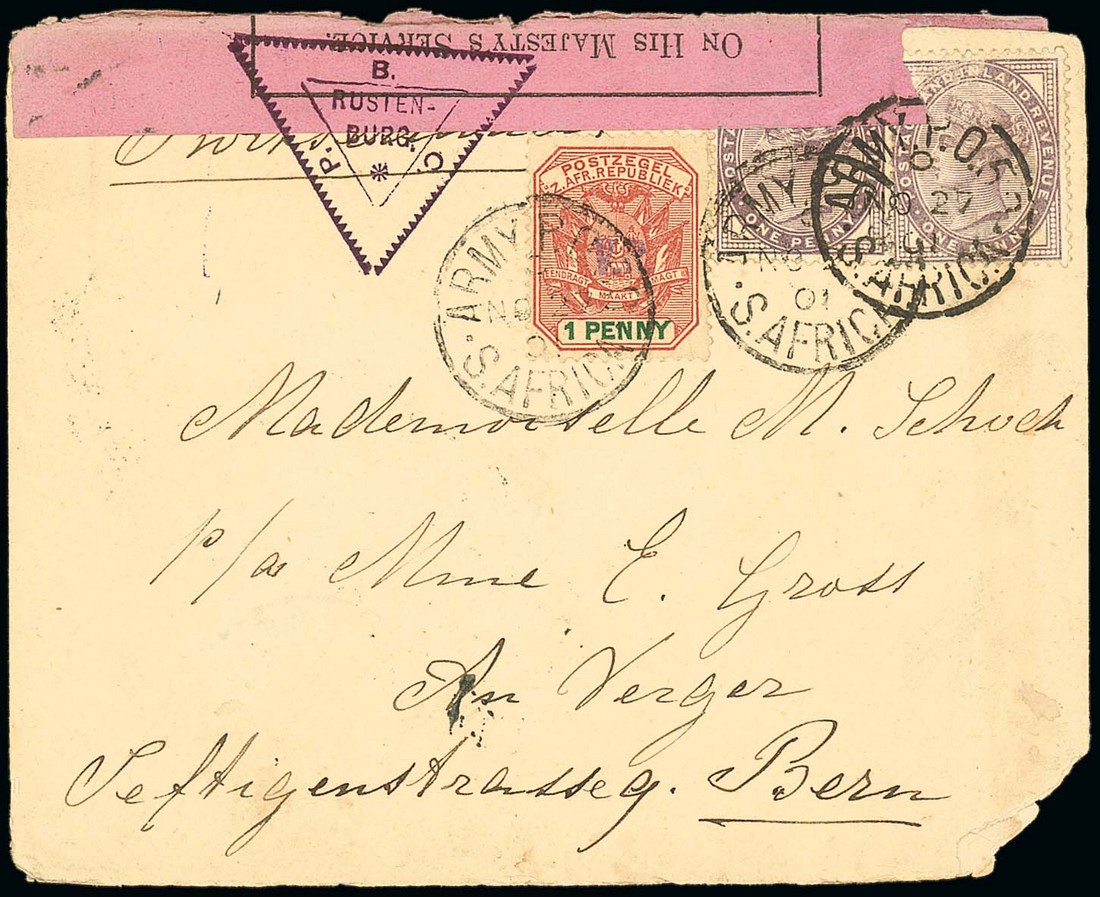 ON HIS MAJESTY'S SERVICE.
P. B. C.
RUSTEN-
BURG.
POSTZEGEL
Z. AFR. REPUBLIEK
EENDRAGT MAAKT MAGT
1 PENNY
POSTAGE
ONE PENNY
INLAND REVENUE
ONE PENNY
ARMY P.O.
NO
S. AFRICA
ARMY
NO
01
S. AFRICA
ARMY P.O. 5
NO 27
01
S. AFRICA
Mademoiselle M. Schoch
p/a Mme E. Gross
An Verger
Seftigenstrasse 9. Bern